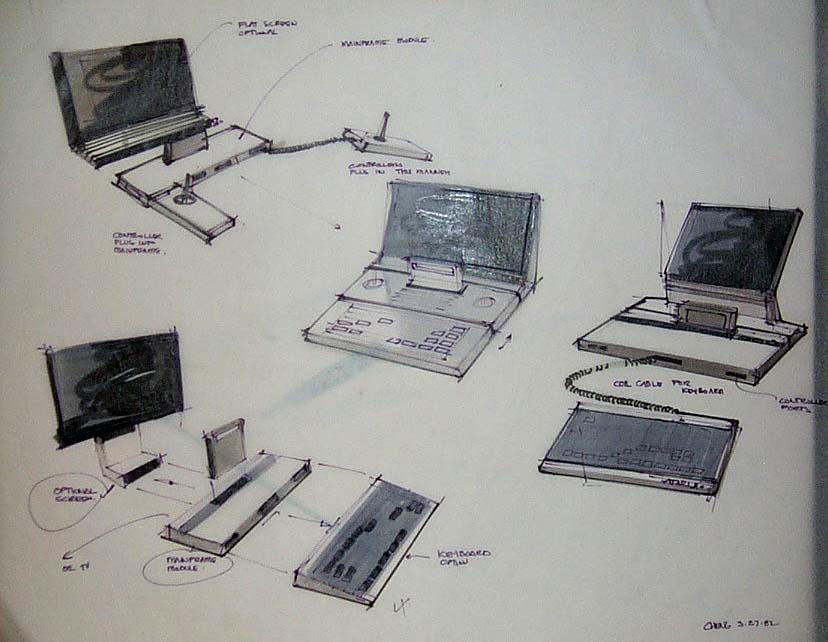 FLAT SCREEN
OPTIONAL
MAINFRAME MODULE.
CONTROLLERS
PLUG IN THIS MANNER
CONTROLLER
PLUG INTO
MAINFRAME.
COIL CABLE FOR
KEYBOARD
CONTROLLER
PORTS
ATARI
OPTIONAL
SCREEN.
OR TV
MAINFRAME
MODULE.
KEYBOARD
OPTION
CHENG 3.27.82